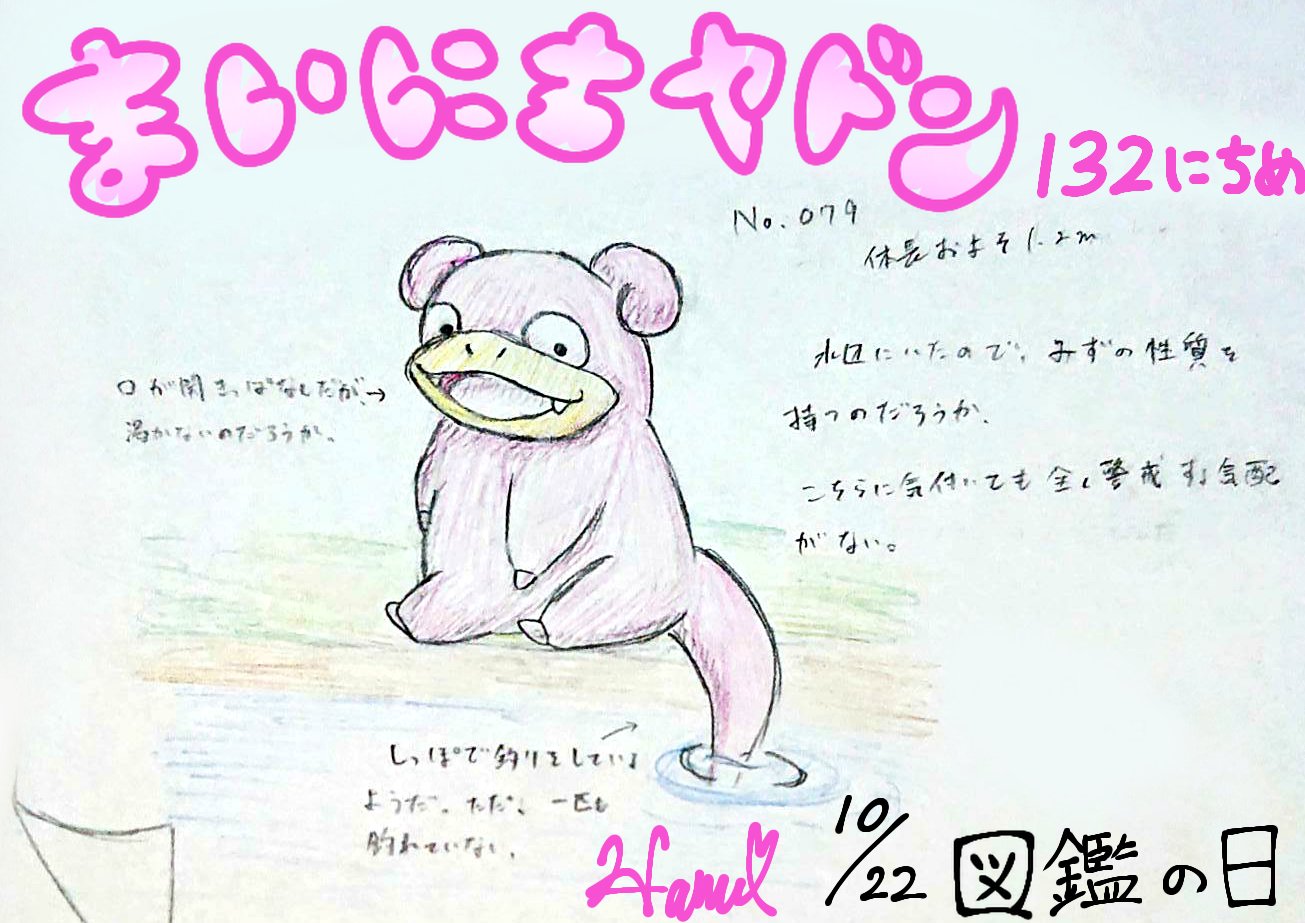 まいにちヤドン
132にちめ
No.079
体長およそ1.2m
水辺にいたので、みずの性質を
持つのだろうか。
こちらに気付いても全く警戒する気配
がない。
口が開きっぱなしだが、→
渇かないのだろうか。
しっぽで釣りをしている
ようだ。ただ、一匹も
釣れていない。
10/22 図鑑の日